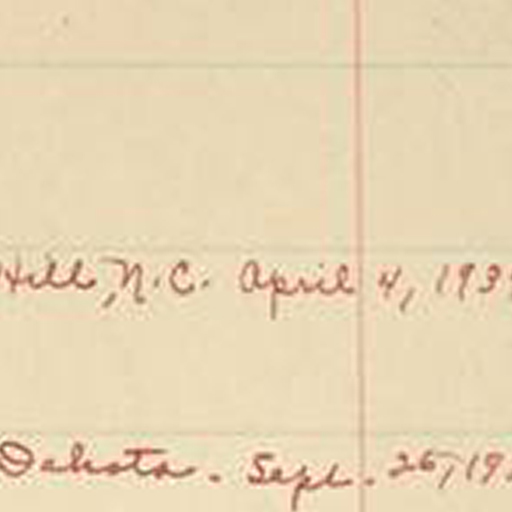 Hill, N.C. April 4, 193
Dakota. Sept. 26, 19